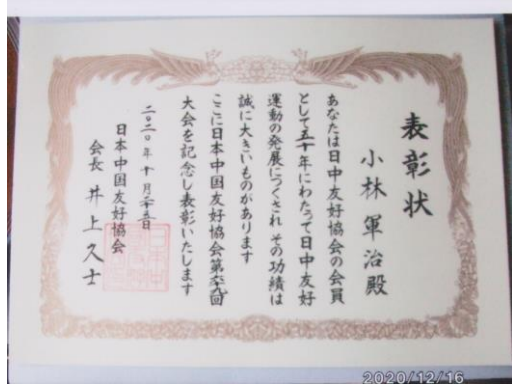 表彰状
小林軍治殿
あなたは日中友好協会の会員
として五十年にわたって日中友好
運動の発展につくされ その功績は
誠に大きいものがあります
ここに日本中国友好協会第六九回
大会を記念し表彰いたします
二〇二〇年十月二十五日
日本中国友好協会
会長 井上久士
2020/12/16